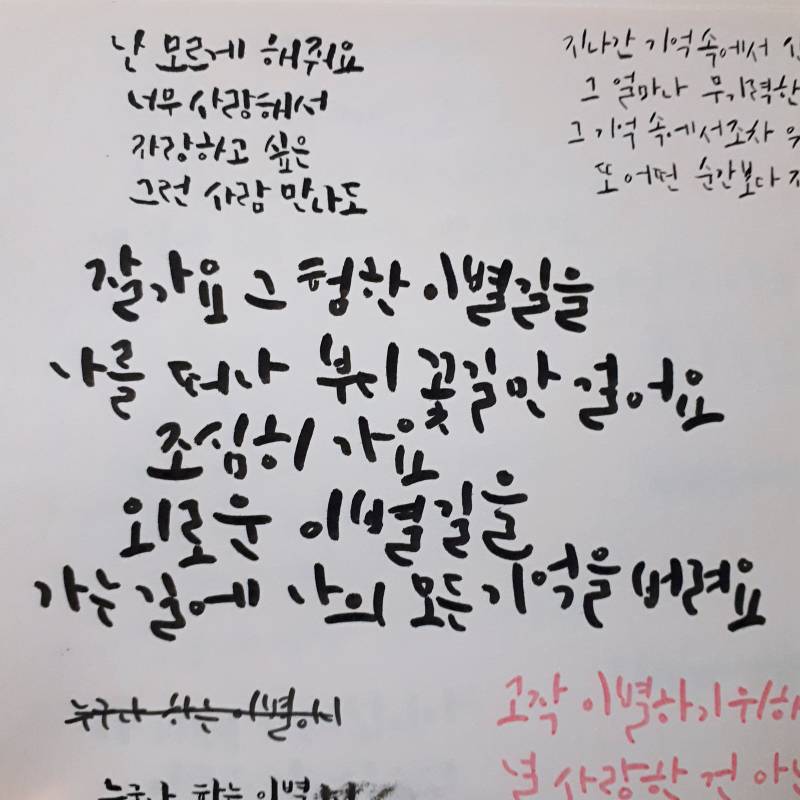 난 모르게 해줘요
너무 사랑해서
자랑하고 싶은
그런 사람 만나도
지나간 기억속에서
그 얼마나 무기력한
그 기억 속에서조차
또 어떤 순간보다
잘가요 그 험한 이별길을
나를 떠나 부디 꽃길만 걸어요
조심히 가요
외로운 이별길을
가는 길에 나의 모든 기억을 버려요
누구나 하는
누구나 하는 이별
고작 이별하기위해
널 사랑한 건